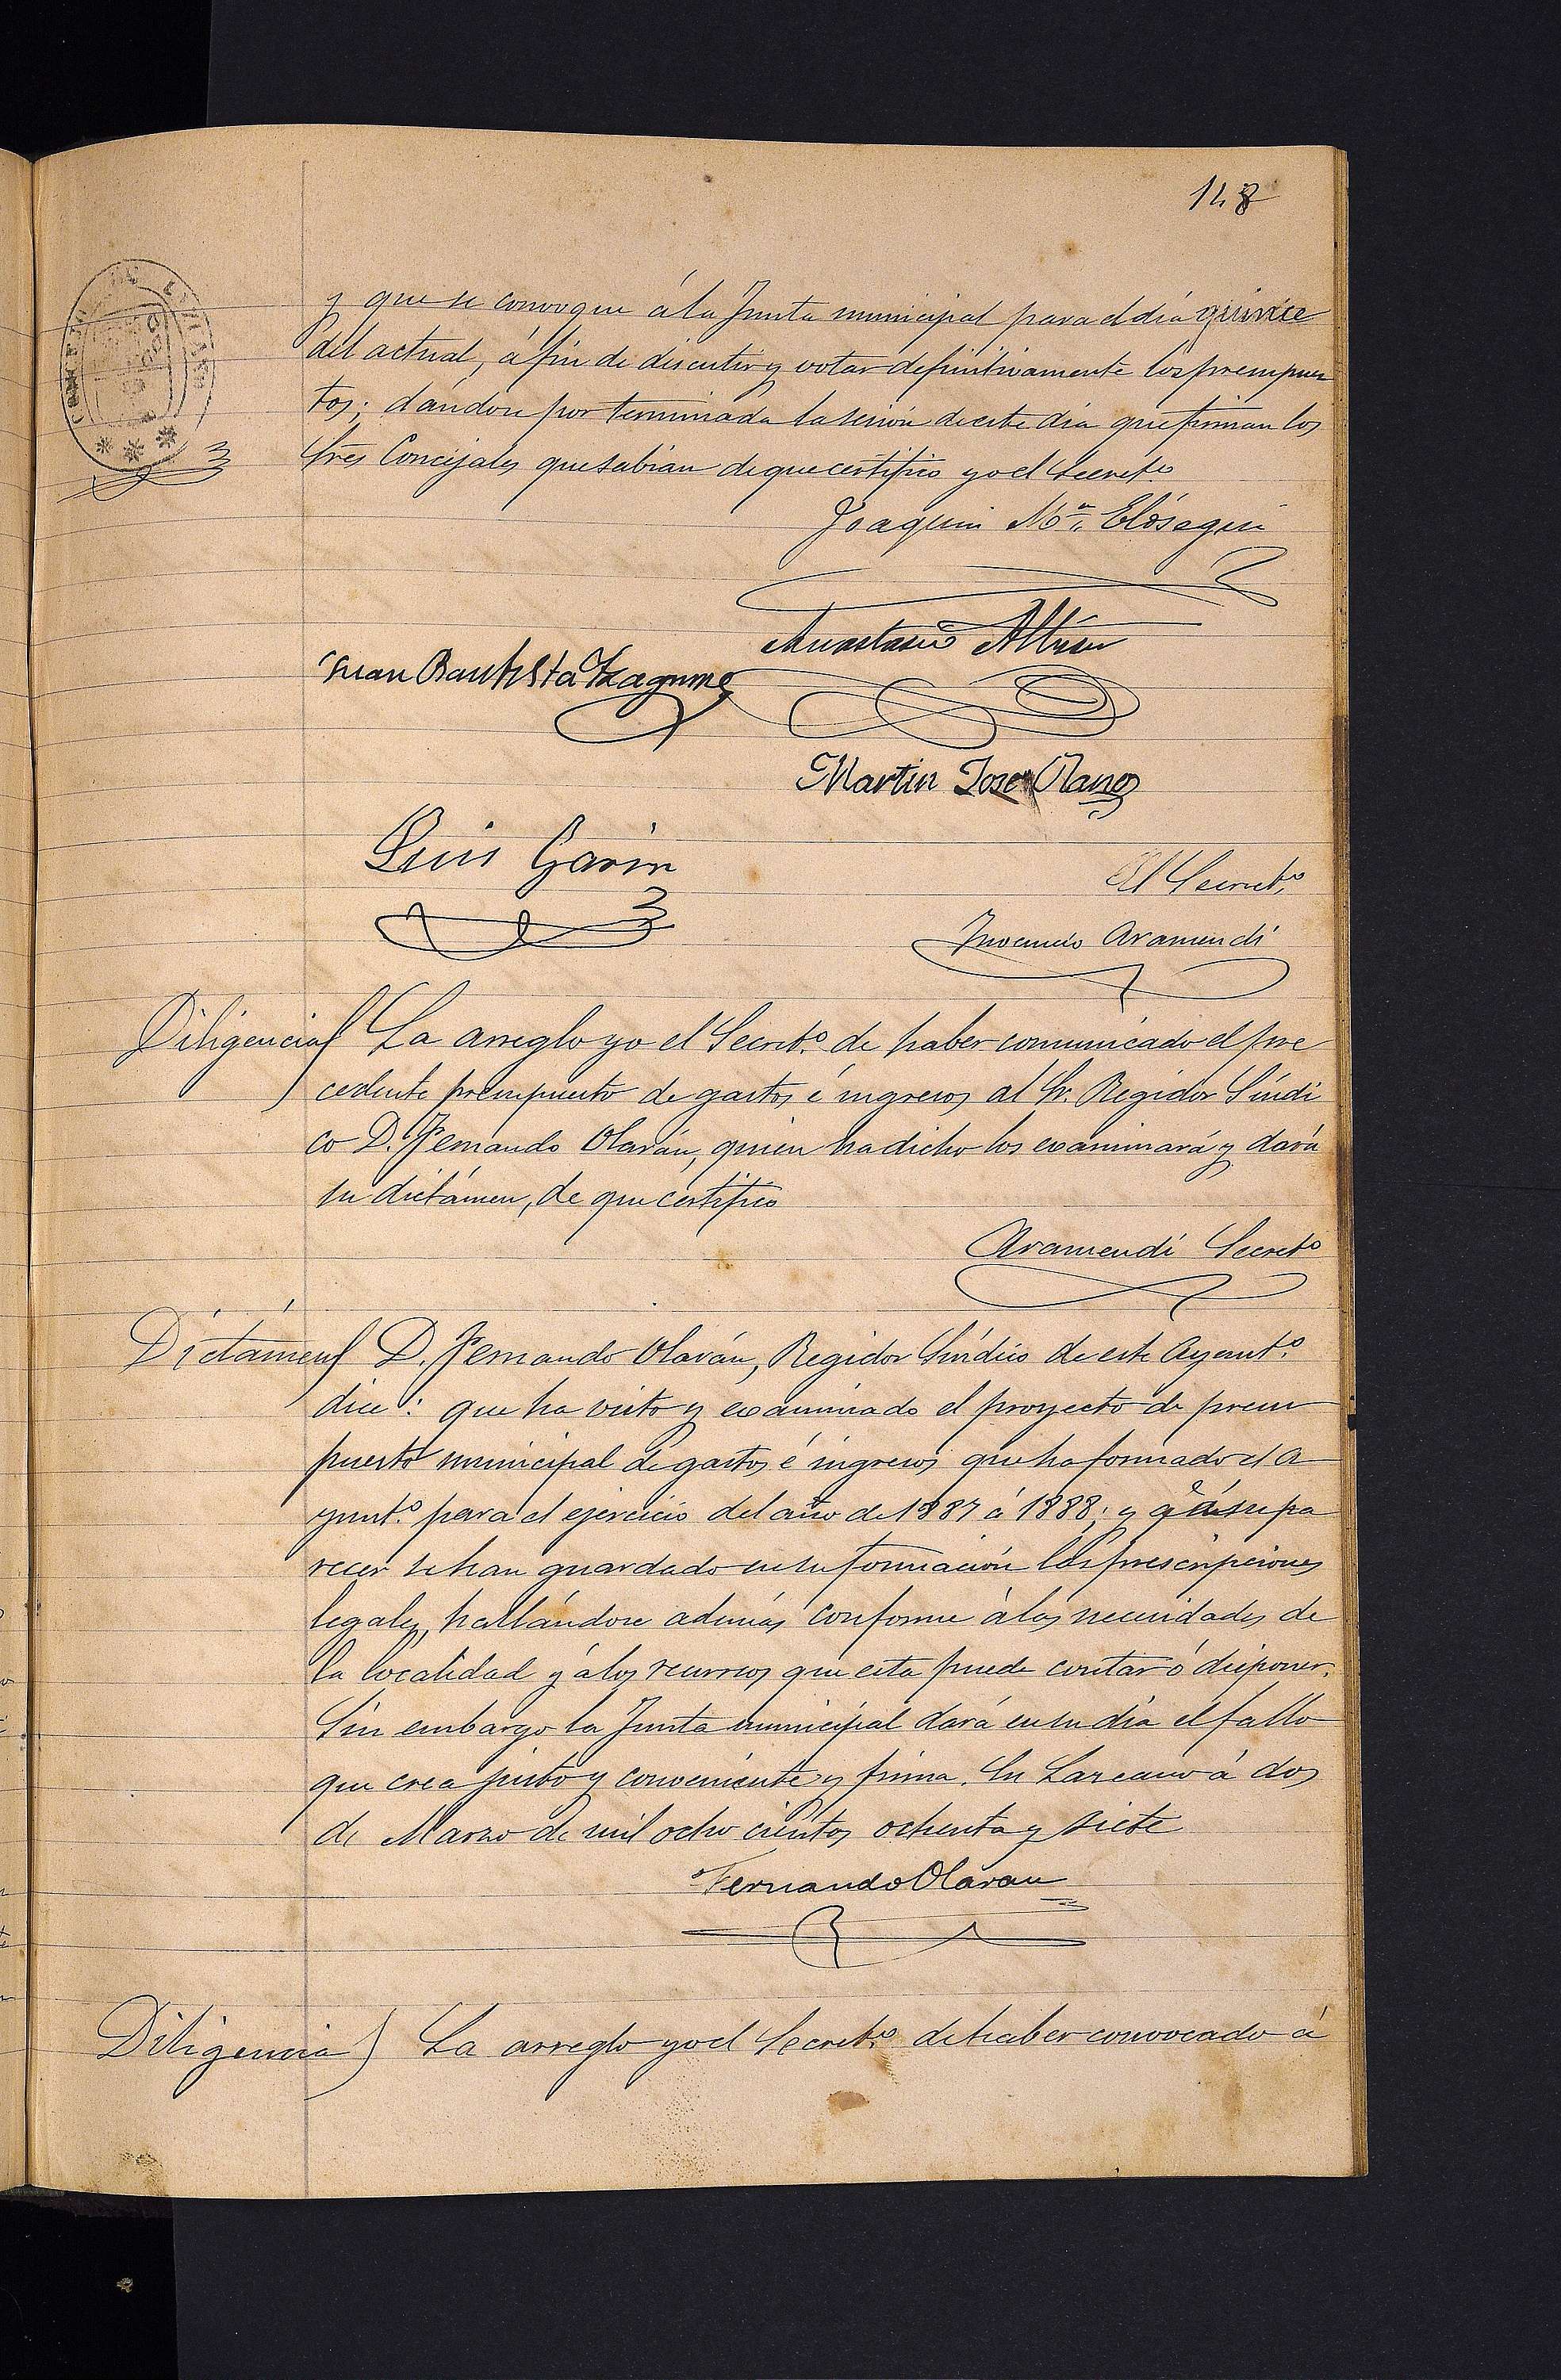 148
y que se convoque á la Junta municipal para el dia quince
del actual, á fin de discutir y votar definitivamente los presupues
tos; dándose por terminada la sesión de este dia que firman los
Sres Concejales que sabian de que certifico yo el Secret.º
Joaquin M.ª Elósegui
Anastasio Albisu
Juan Bautista Izaguirre
Martin Jose Olano
Luis Garin
El Secret.º
Inocencio Aramendi
Diligencia) La arreglo yo el Secret.º de haber comunicado el pre
cedente presupuesto de gastos é ingresos al Sr. Regidor Síndi
co D. Fernando Olarán, quien ha dicho los examinará y dará
su dictámen, de que certifico
Aramendi Secret.º
Dictámen) D. Fernando Olarán, Regidor Síndico de este Ayunt.º
dice: que ha visto y examinado el proyecto de presu
puesto municipal de gastos é ingresos que ha formado el A
yunt.º para el ejercicio del año de 1887 á 1888; y q.e á su pa
recer se han guardado en su formación las prescripciones
legales, hallándose además conforme á las necesidades de
la localidad y á los recursos que esta puede contar ó disponer.
Sin embargo la Junta municipal dará en su dia el fallo
que crea justo y conveniente y firma. En Lazcano á dos
de Marzo de mil ocho cientos ochenta y siete
Fernando Olaran
Diligencia) La arreglo yo el Secret.º de haber convocado á